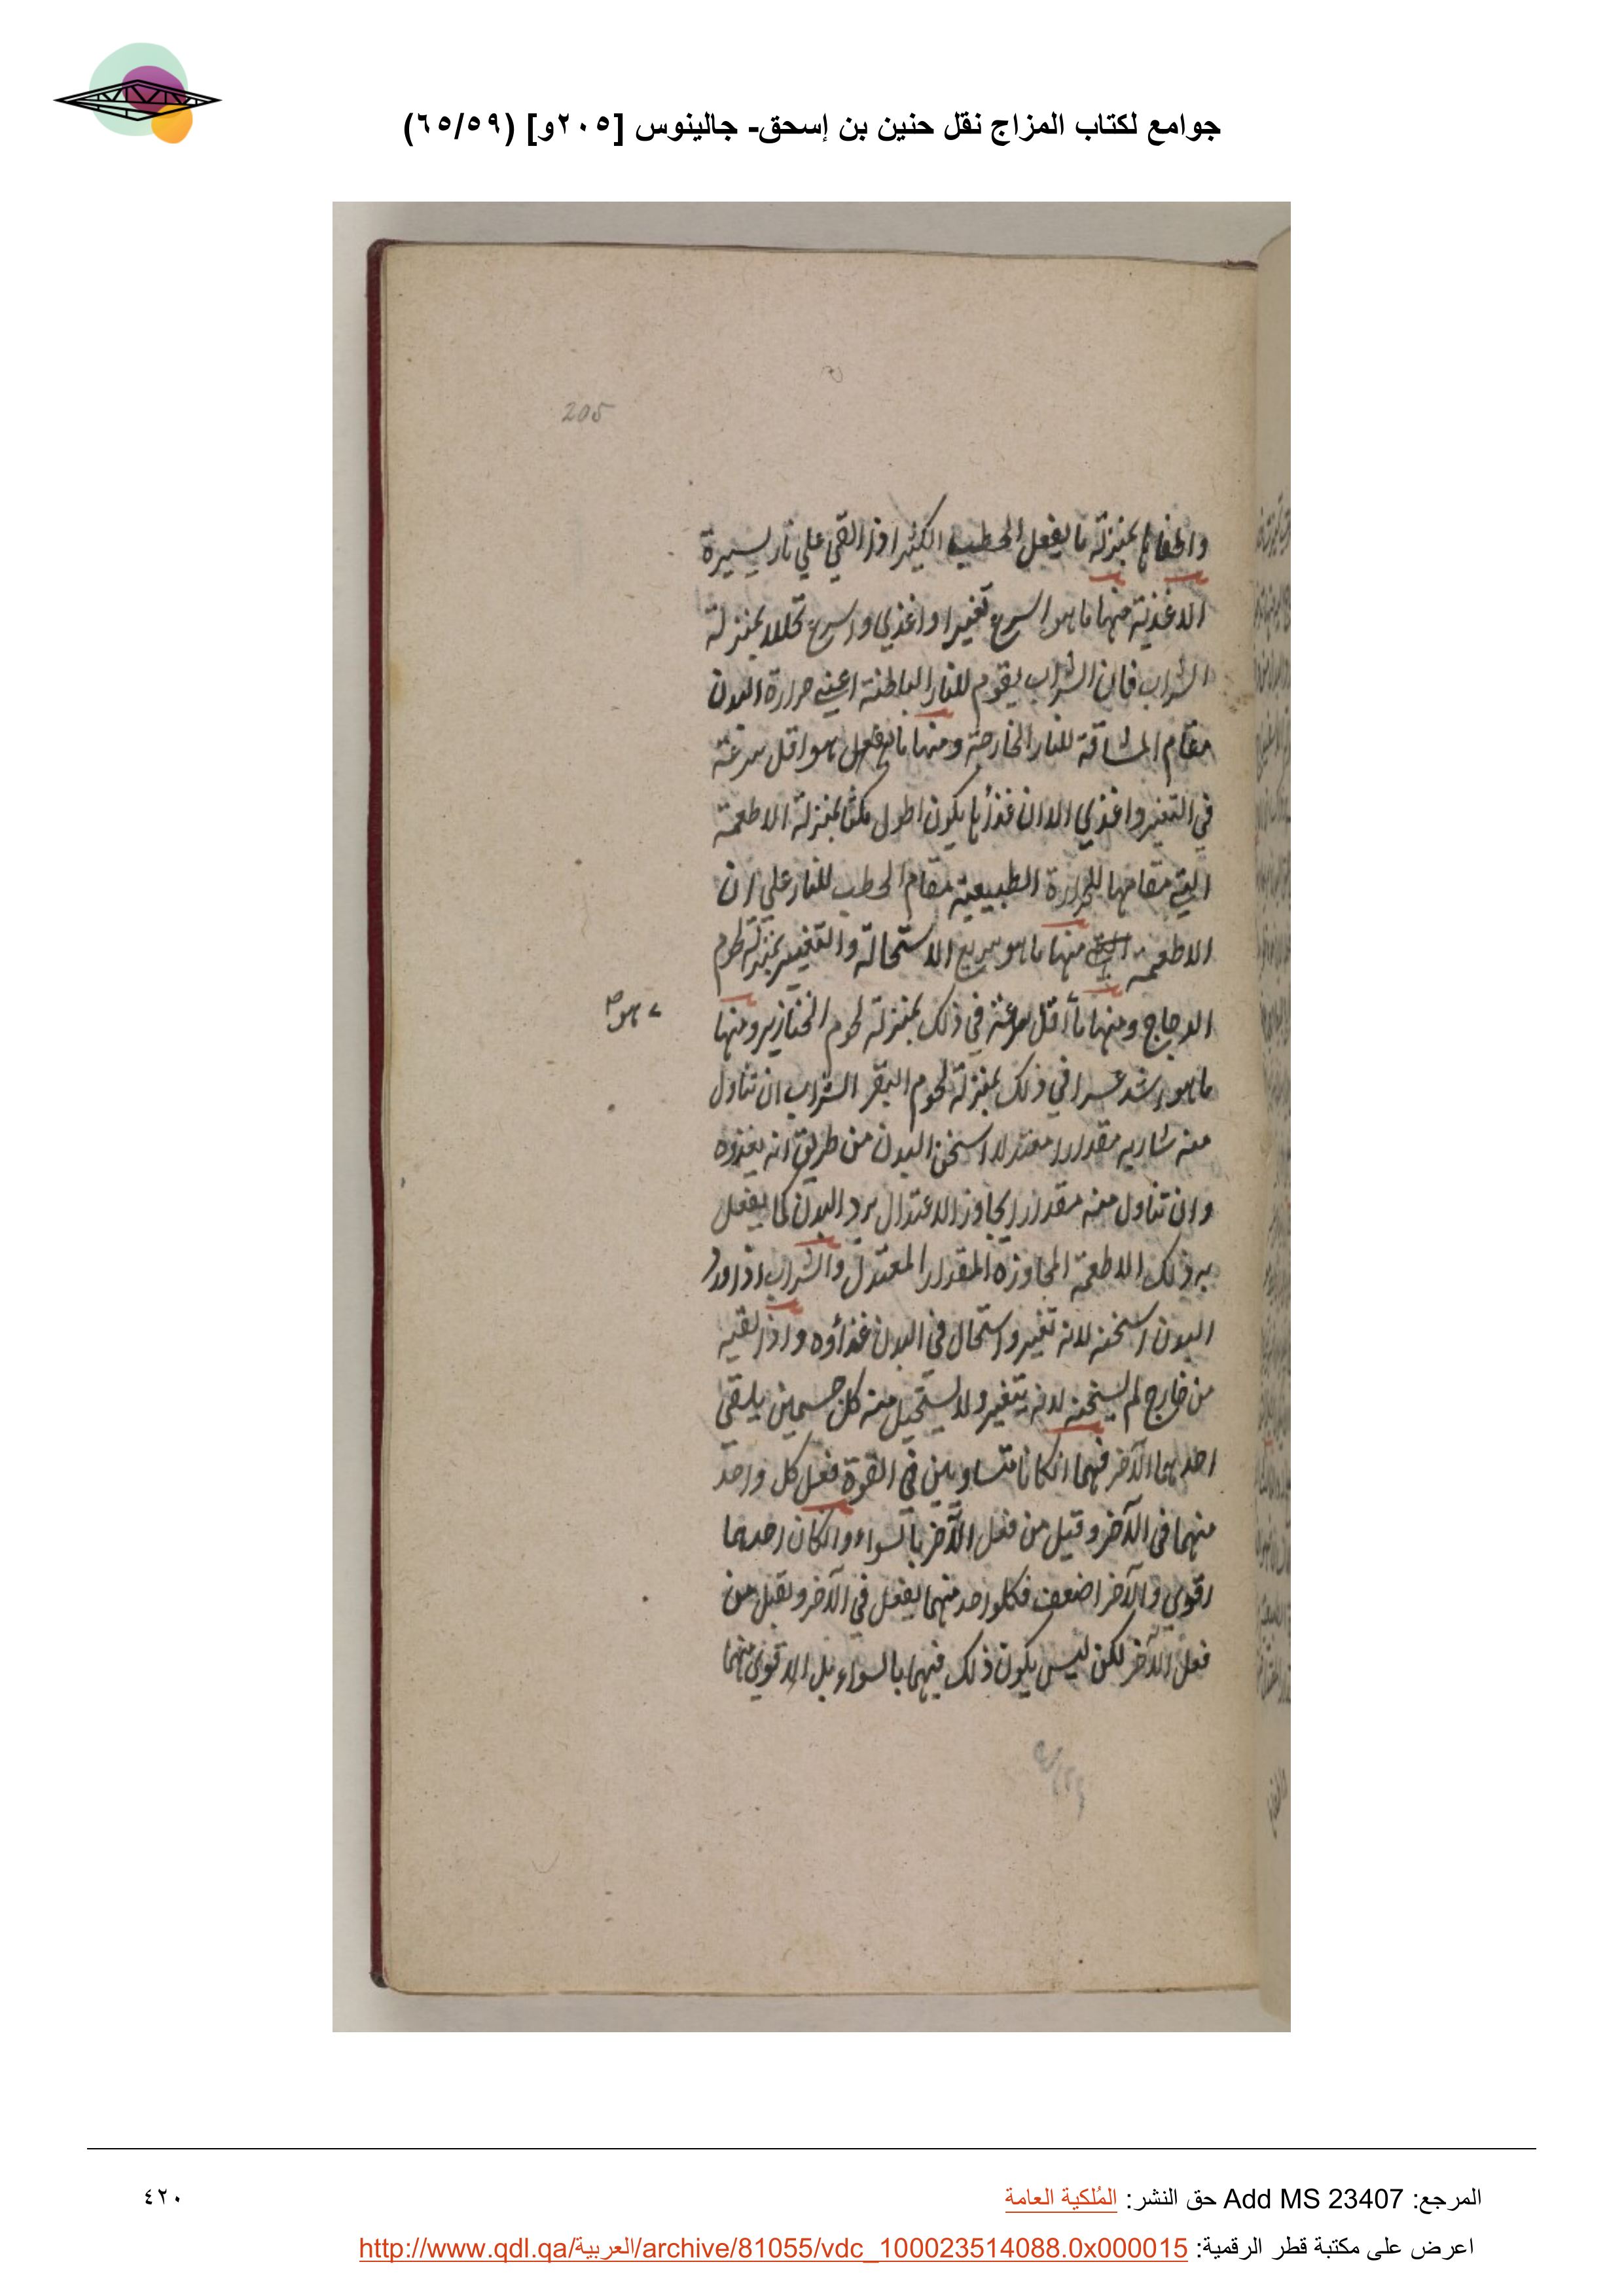 جوامع لكتاب المزاج نقل حنين بن إسحق- جالينوس [٢٠٥و] (٦٥/٥٩)
205
واطفاها بمنزلة ما يفعل الحطب الكثير اذا القي علي نار يسيرة
الاغذية منها ما هو اسرع تغيرا واغذي واسرع تحللا بمنزلة
الشراب فان الشراب يقوم للنار الباطنة اعني حرارة البدن
مقام المشاقة للنار الخارجة ومنها ما هو اقل سرعة
في التغير واغذي الا ان غذأها يكون اطول مكثا بمنزلة الاطعمة
التي مقامها للحرارة الطبيعية مقام الحطب للنار علي ان
الاطعمة منها ما هو سريع الاستحالة والتغيير بمنزلة لحوم
الدجاج ومنها ما أقل سرعة في ذلك بمنزلة لحوم الخنازير ومنها
هو
ما هو اشد عسرا في ذلك بمنزلة لحوم البقر الشراب ان تناول
منه شاربه مقدارا معتدلا اسخن البدن من طريق انه يغذوه
وان تناول منه مقدارا يجاوز الاعتدال برد البدن كما يفعل
به ذلك الاطعمة المجاوزة المقدار المعتدل والشراب اذا ورد
البدن اسخنه لانه تغير واستحال في البدن غذأوه واذا لقيه
من خارج لم يسخنه لانه يتغير ولا يستحيل منه كل جسمين يلقي
احدهما الآخر فهما انكانا متساويين في القوة فعل كل واحد
منهما في الآخر وقبل من فعل الآخر بالسواء وانكان احدهما
اقوي والآخر اضعف فكلواحد منهما يفعل في الآخر ويقبل من
فعل الآخر لكن ليس يكون ذلك فيهما بالسواء بل الاقوي منهما
المرجع: Add MS 23407 حق النشر: المُلكية العامة
٤٢٠
اعرض على مكتبة قطر الرقمية: http://www.qdl.qa/العربية/archive/81055/vdc_100023514088.0x000015